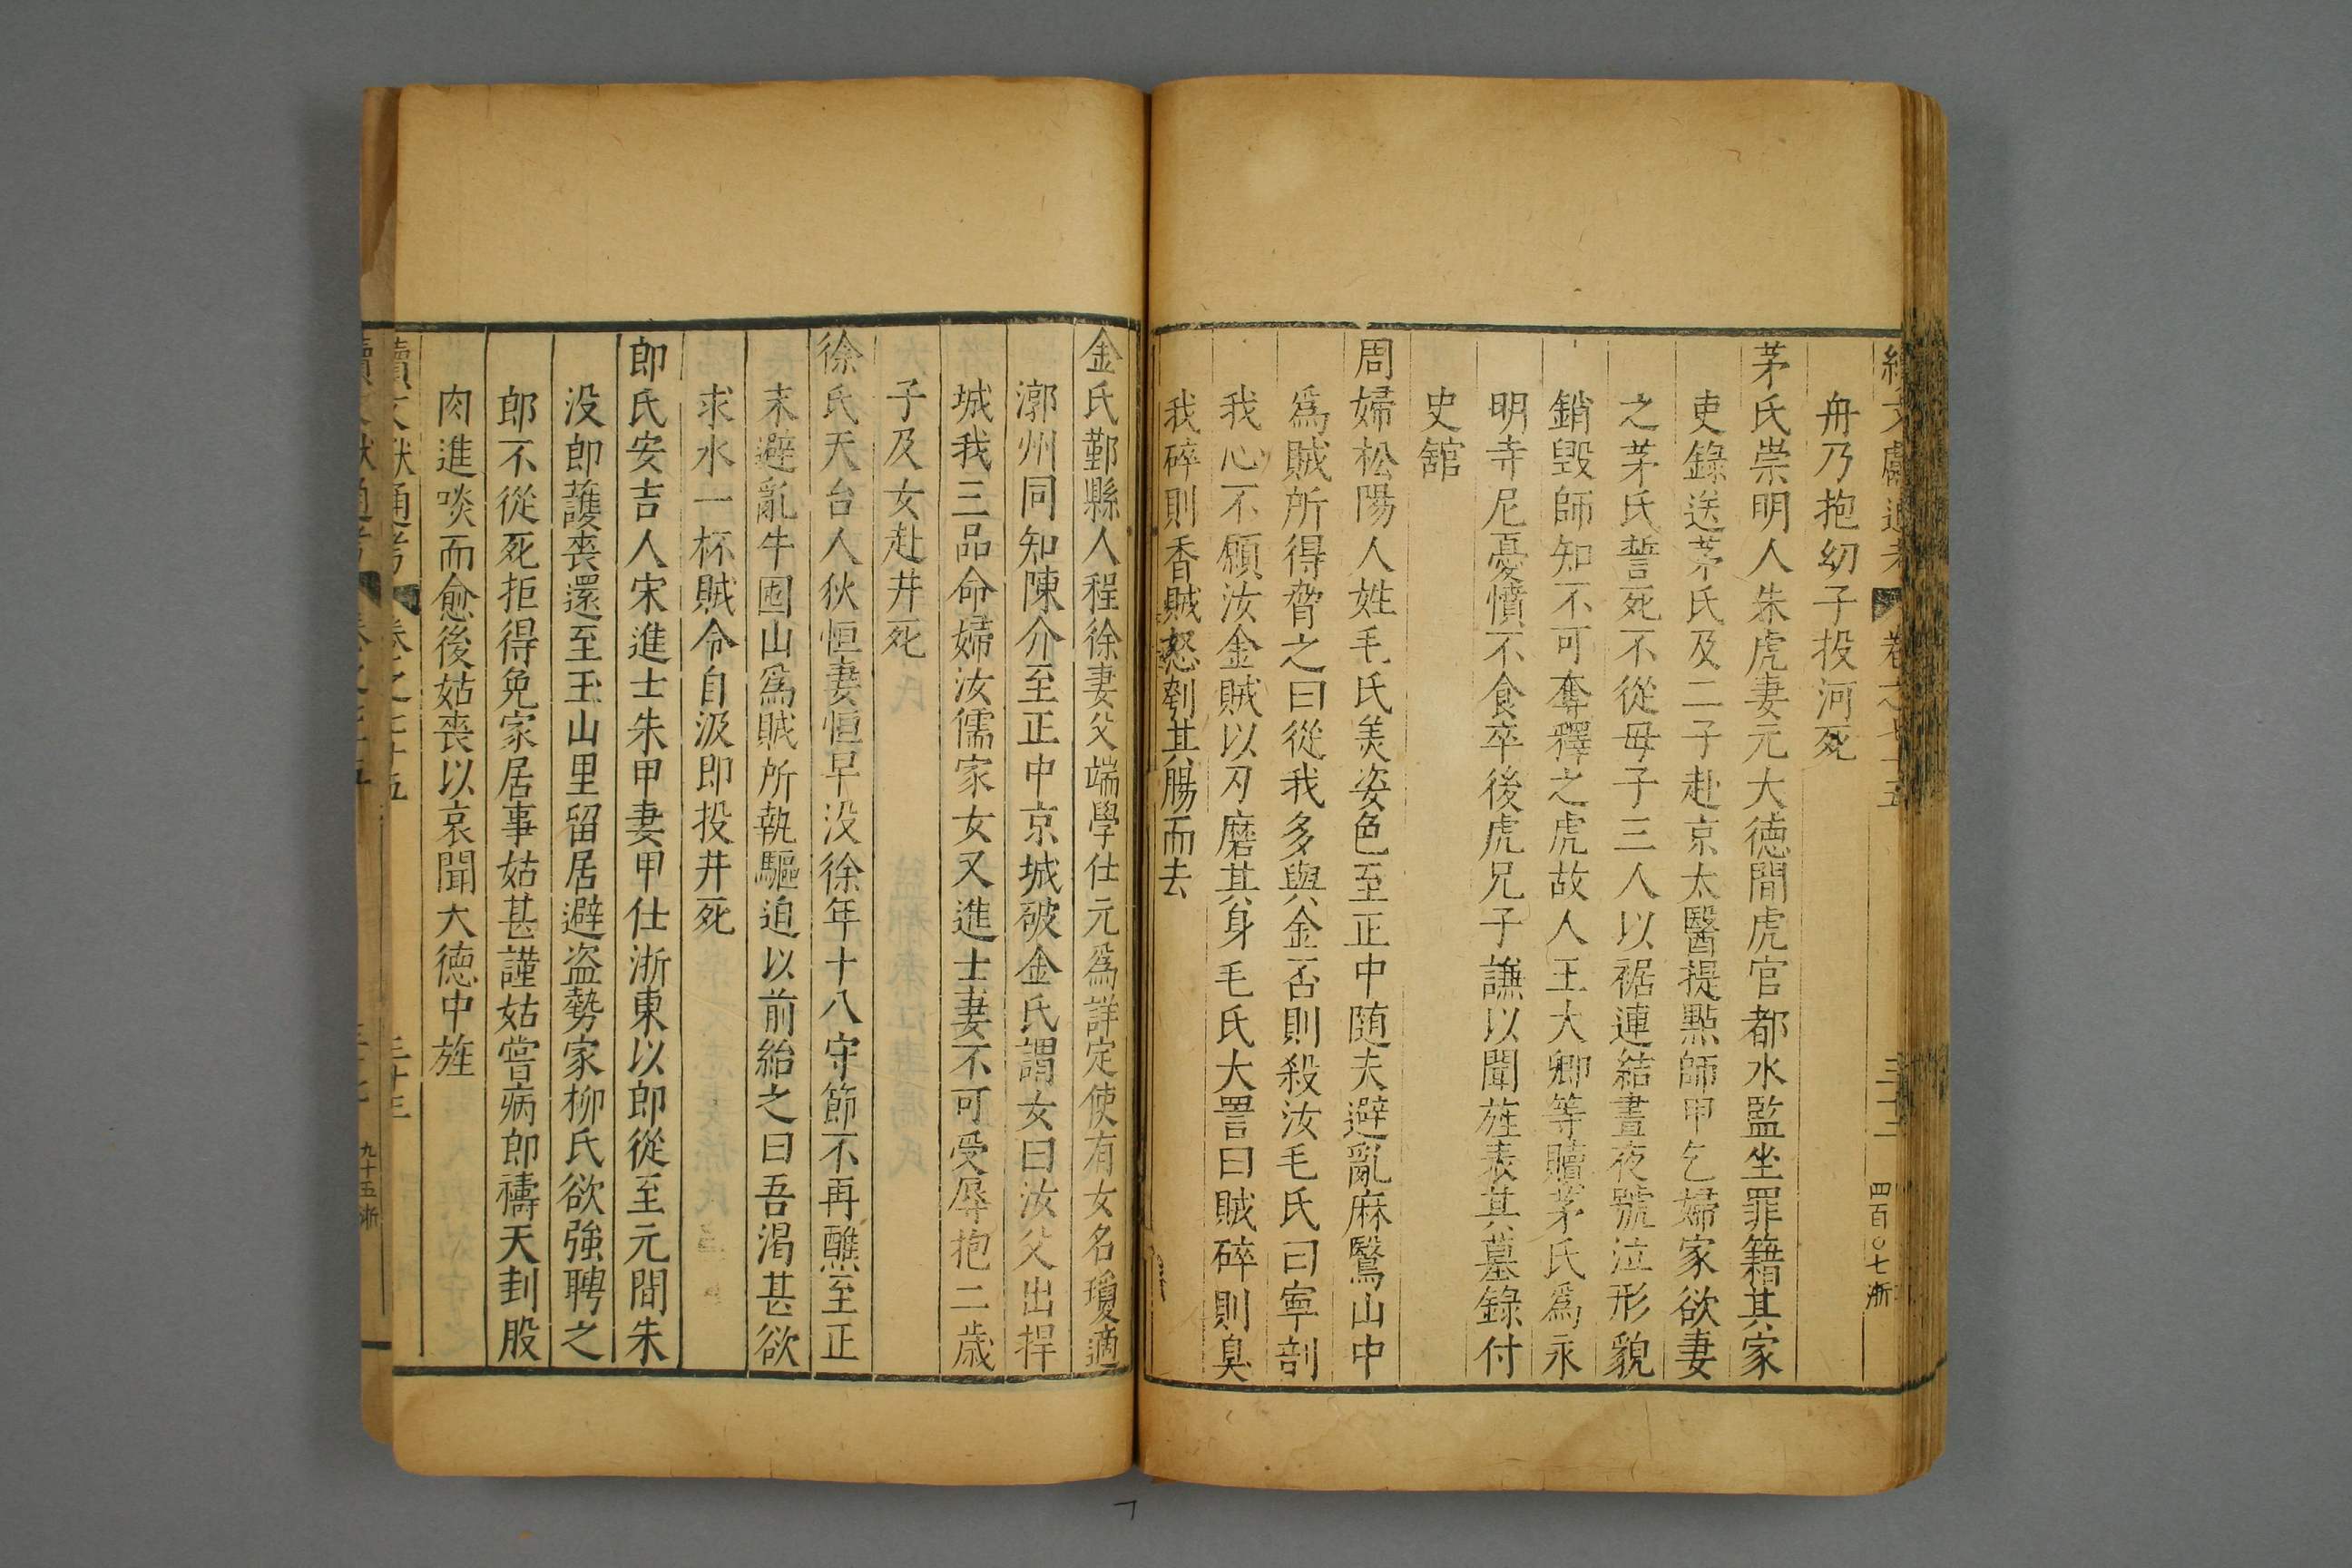 續文獻通考 卷之七十五 三十二 四百〇七浙
舟乃抱幼子投河死
茅氏崇明人朱虎妻元大德間虎官都水監坐罪籍其家
吏錄送茅氏及二子赴京太醫提點師甲乞婦家欲妻
之茅氏誓死不從母子三人以裾連結晝夜號泣形貌
銷毁師知不可奪釋之虎故人王大卿等贖茅氏爲永
明寺尼憂憤不食卒後虎兄子謙以聞旌表其墓錄付
史舘
周婦松陽人姓毛氏美姿色至正中随夫避亂麻鷖山中
爲賊所得脅之曰從我多與金否則殺汝毛氏曰寧剖
我心不願汝金賊以刃磨其身毛氏大詈曰賊碎則臭
我碎則香賊怒刳其腸而去
金氏鄞縣人程徐妻父端學仕元爲詳定使有女名瓊適
漷州同知陳介至正中京城破金氏謂女曰汝父出捍
城我三品命婦汝儒家女又進士妻不可受辱抱二歲
子及女赴井死
徐氏天台人狄恒妻恒早没徐年十八守節不再醮至正
末避亂牛囤山爲賊所執驅迫以前紿之曰吾渴甚欲
求水一杯賊令自汲即投井死
郎氏安吉人宋進士朱甲妻甲仕浙東以郎從至元間朱
没郎護喪還至玉山里留居避盜勢家柳氏欲強聘之
郎不從死拒得免家居事姑甚謹姑嘗病郎禱天刲股
肉進啖而愈後姑喪以哀聞大德中旌
續文獻通考 卷之七十五 三十三
九十五浙